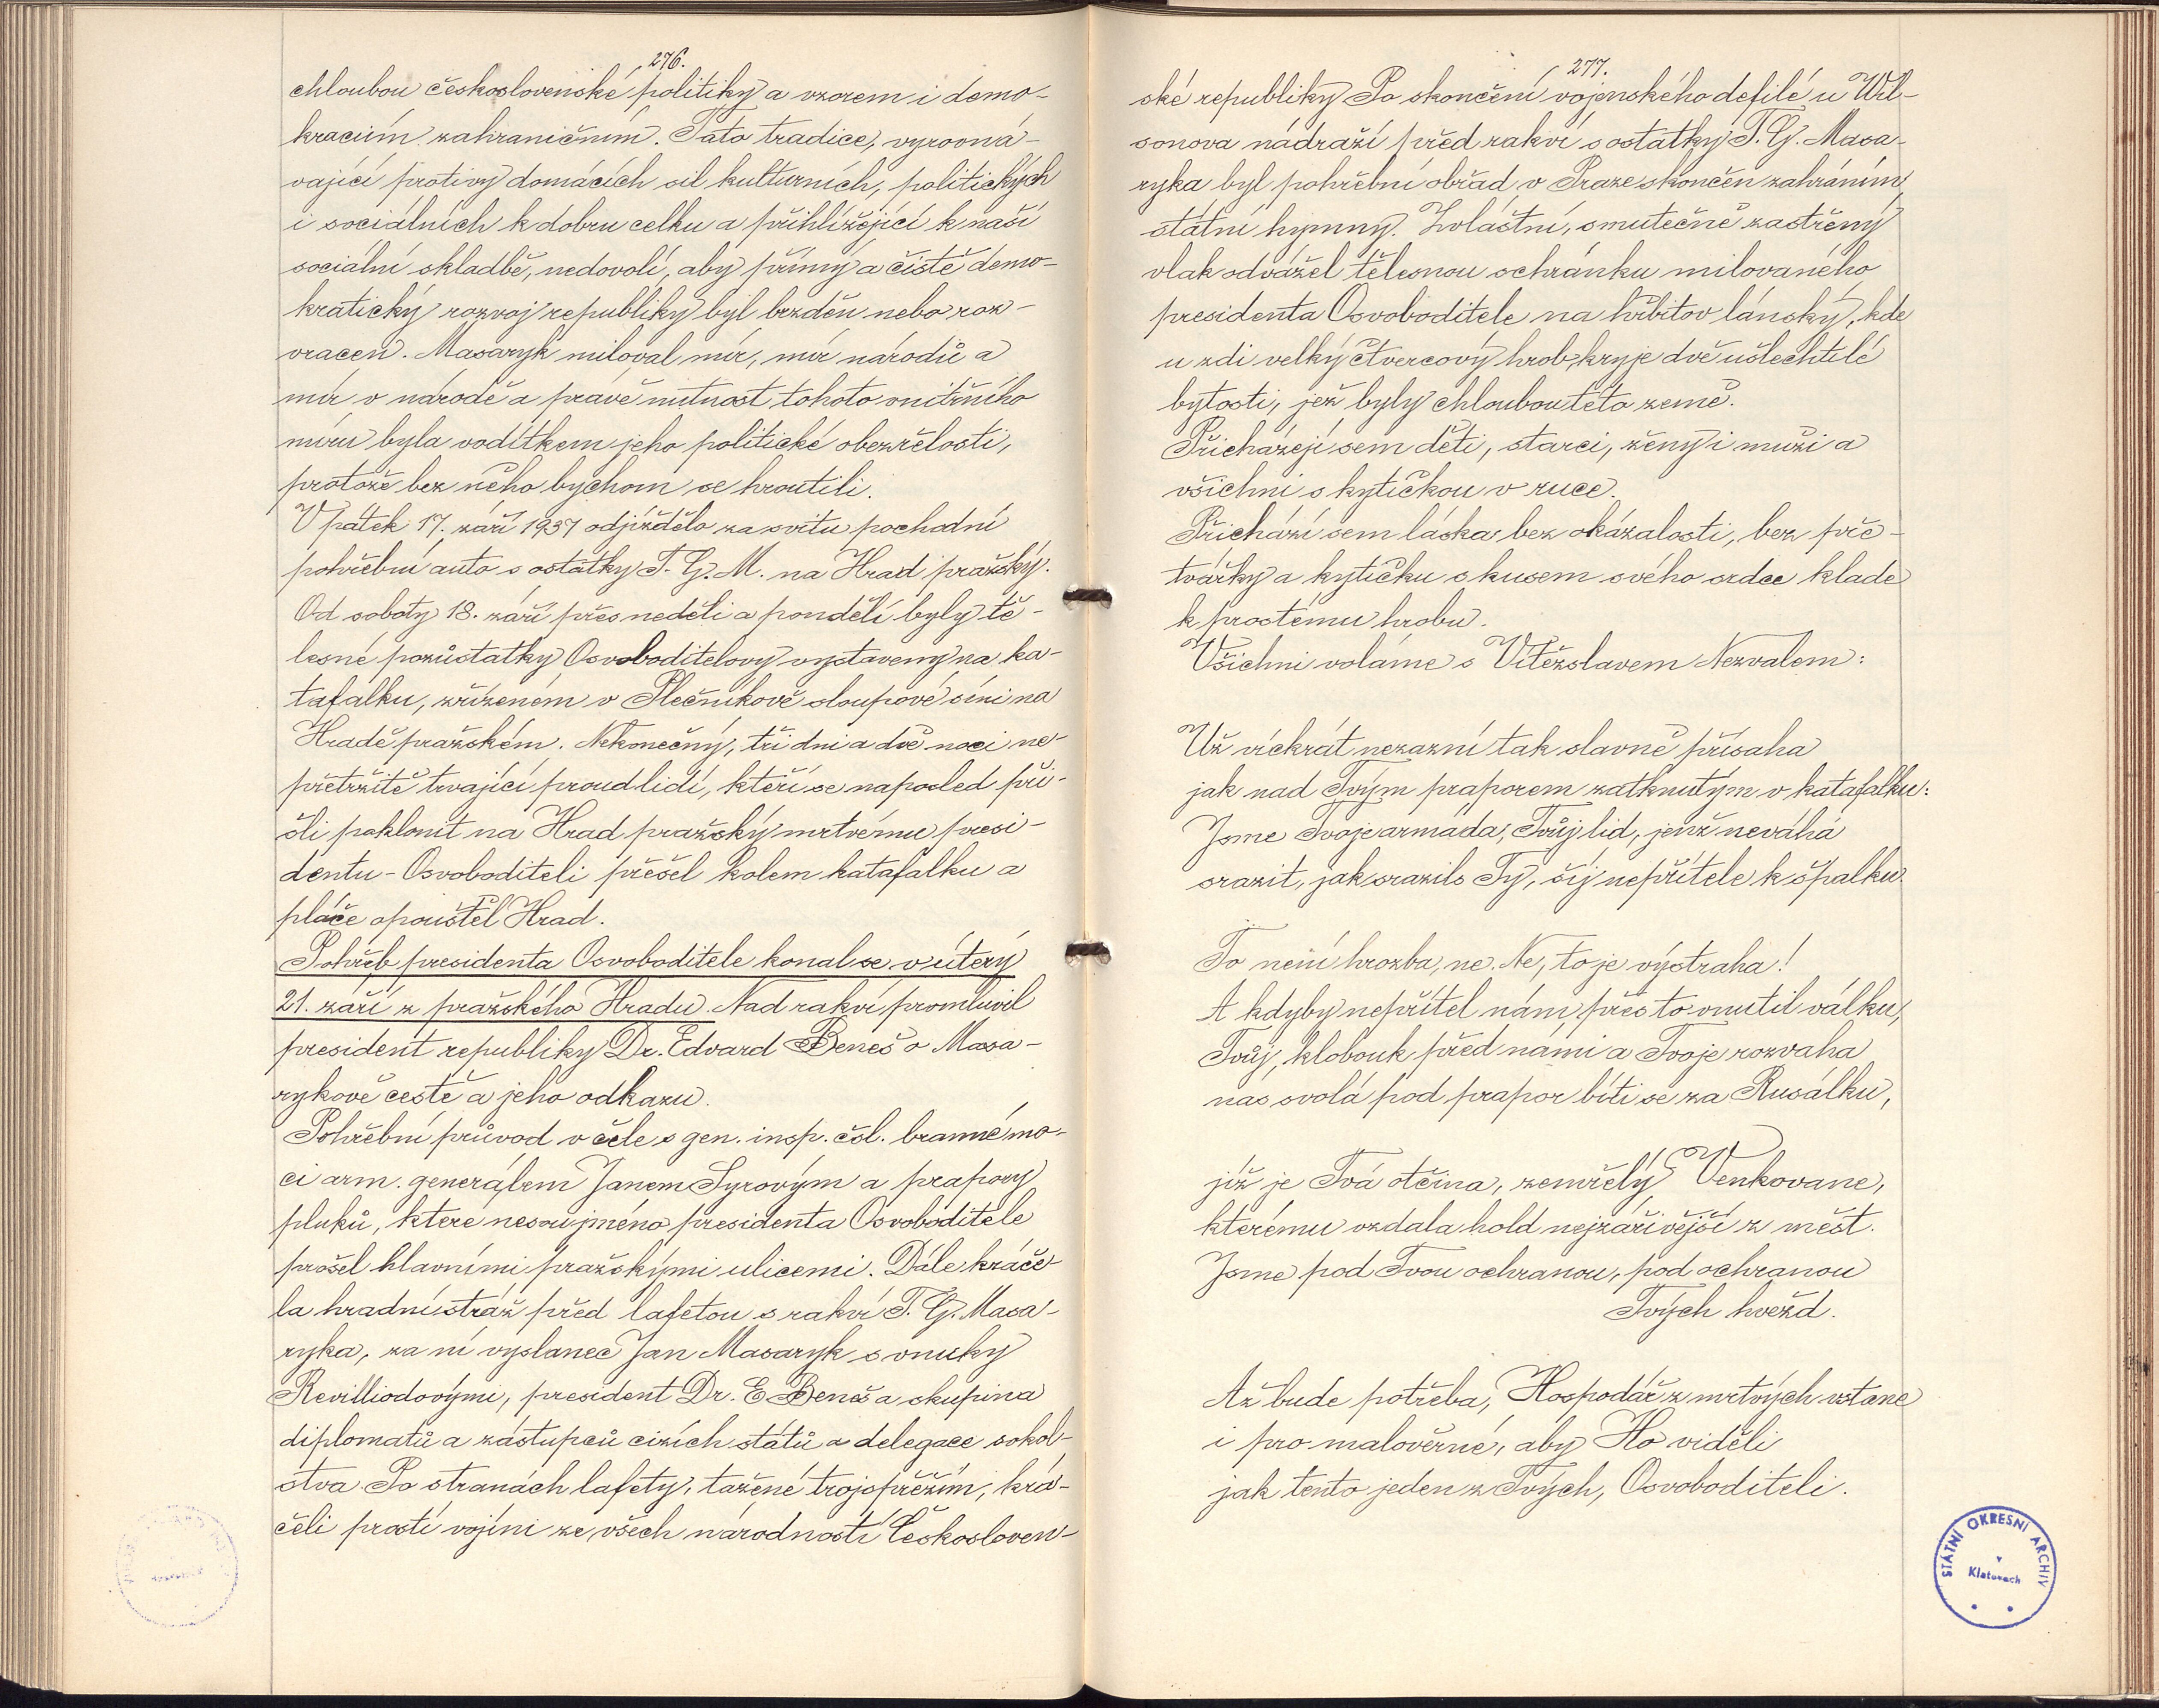 276.
chloubou československé politiky a vzorem i demo-
kraciím zahraničním. Tato tradice, vyrovná-
vající protivy domácích sil kulturních, politických
i sociálních k dobru celku a přihlížející k naší
sociální skladbě, nedovolí, aby přímý a čistě demo-
kratický rozvoj republiky byl brzděn nebo roz-
vrácen. Masaryk miloval mír, mír národů a
mír v národě a právě nutnost tohoto vnitřního
míru byla vodítkem jeho politické obezřelosti,
protože bez něho bychom se hroutili.
V pátek 17. září 1937 odjíždělo za svitu pochodní
pohřební auto s ostatky T. G. M. na Hrad pražský.
Od soboty 18. září přes neděli a pondělí byly tě-
lesné pozůstatky Osvoboditelovy vystaveny na ka-
tafalku, zřízeném v Plečnikově sloupové síni na
Hradě pražském. Nekonečný, tři dni a dvě noci ne-
přetržitě trvající proud lidí, kteří se naposled při-
šli poklonit na Hrad pražský mrtvému presi-
dentu-Osvoboditeli přešel kolem katafalku a
pláče opouštěl Hrad.
Pohřeb presidenta Osvoboditele konal se v úterý
21. září z pražského Hradu. Nad rakví promluvil
president republiky Dr. Edvard Beneš o Masa-
rykově cestě a jeho odkazu.
Pohřební průvod v čele s gen. insp. čsl. branné mo-
ci arm. generálem Janem Syrovým a prapory
pluků, které nesou jméno presidenta Osvoboditele
prošel hlavními pražskými ulicemi. Dále kráče-
la hradní stráž před lafetou s rakví T. G. Masa-
ryka, za ní vyslanec Jan Masaryk s vnuky
Revilliodovými, president Dr. E. Beneš a skupina
diplomatů a zástupců cizích států a delegace sokol-
stva. Po stranách lafety, tažené trojspřežím, krá-
čeli prostí vojíni ze všech národností Českosloven-
277.
ské republiky. Po skončení vojenského defilé u Wil-
sonova nádraží před rakví s ostatky T. G. Masa-
ryka byl pohřební obřad v Praze skončen zahráním
státní hymny. Zvláštní, smutečně zastřený
vlak odvážel tělesnou schránku milovaného
presidenta Osvoboditele na hřbitov lánský, kde
u zdi velký čtvercový hrob kryje dvě ušlechtilé
bytosti, jež byly chloubou této země.
Přicházejí sem děti, starci, ženy i muži a
všichni s kytičkou v ruce.
Přichází sem láska bez okázalosti, bez pře-
tvářky a kytičku s kusem svého srdce klade
k prostému hrobu.
Všichni voláme s Vítězslavem Nezvalem:
Už víckrát nezazní tak slavně přísaha
jak nad Tvým praporem zatknutým v katafalku:
Jsme Tvoje armáda, Tvůj lid, jenž neváhá
srazit, jak srazils Ty, šíj nepřítele k špalku.
To není hrozba, ne. Ne, to je výstraha!
A kdyby nepřítel nám přes to vnutil válku,
Tvůj klobouk před námi a Tvoje rozvaha
nás svolá pod prapor bíti se za Rusálku,
jíž je Tvá otčina, zemřelý Venkovane,
kterému vzdala hold nejzářivější z měst.
Jsme pod Tvou ochranou, pod ochranou
Tvých hvězd.
Až bude potřeba, Hospodář z mrtvých vstane
i pro malověrné, aby Ho viděli
jak tento jeden z Tvých, Osvoboditeli.
STÁTNÍ OKRESNÍ ARCHIV
v
Klatovech